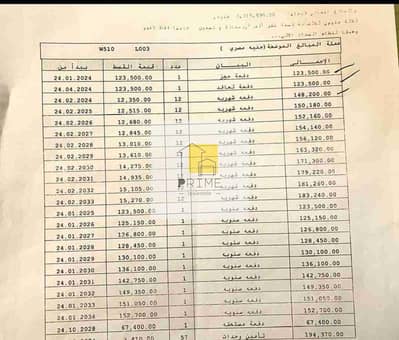 W510 L003 عملة المبالغ الموضحة (جنيه مصري)
الإجمالى البيان عدد قيمة القسط يبدأ من
123,500.00 دفعة حجز 1 123,500.00 24.01.2024
123,500.00 دفعة تعاقد 1 123,500.00 24.04.2024
148,200.00 دفعه شهريه 12 12,350.00 24.02.2024
150,180.00 دفعه شهريه 12 12,515.00 24.02.2025
152,160.00 دفعه شهريه 12 12,680.00 24.02.2026
154,140.00 دفعه شهريه 12 12,845.00 24.02.2027
156,120.00 دفعه شهريه 13,010.00 24.02.2028
163,320.00 دفعه شهريه 13,610.00 24.02.2029
171,300.00 دفعه شهريه 14,275.00 24.02.2030
179,220.00 دفعه شهريه 14,935.00 24.02.2031
181,260.00 دفعه شهريه 15,105.00 24.02.2032
183,240.00 دفعه شهريه 12 15,270.00 24.02.2033
123,500.00 دفعه سنويه 1 123,500.00 24.01.2025
125,150.00 دفعه سنويه 1 125,150.00 24.01.2026
126,800.00 دفعه سنويه 1 126,800.00 24.01.2027
128,450.00 دفعه سنويه 1 128,450.00 24.01.2028
130,100.00 دفعه سنويه 1 130,100.00 24.01.2029
136,100.00 دفعه سنويه 1 136,100.00 24.01.2030
142,750.00 دفعه سنويه 1 142,750.00 24.01.2031
149,350.00 دفعه سنويه 1 149,350.00 24.01.2032
151,050.00 دفعه سنويه 1 151,050.00 24.01.2033
152,700.00 دفعه سنويه 1 152,700.00 24.01.2034
67,400.00 دفعة 1 67,400.00 24.10.2028
194,370.00 تأمين وحدات 57
PRIME